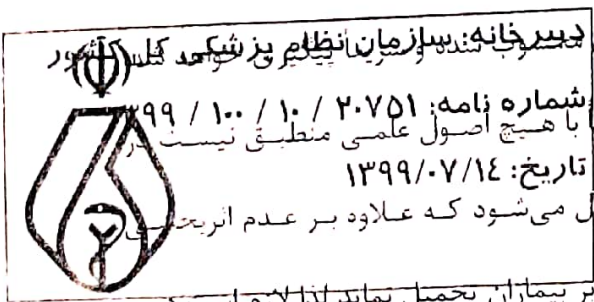 دبیرخانه: سازمان نظام پزشکی کل کشور
شماره نامه: ۲۰۷۵۱ / ۱۰ / ۱۰۰ / ۳۹۹
با هیچ اصول علمی منطبق نیست در
تاریخ: ۱۳۹۹/۰۷/۱٤
ل می‌شود که علاوه بر عدم اثربخشی
بر بیماران تحمیل نماید لذا لازم